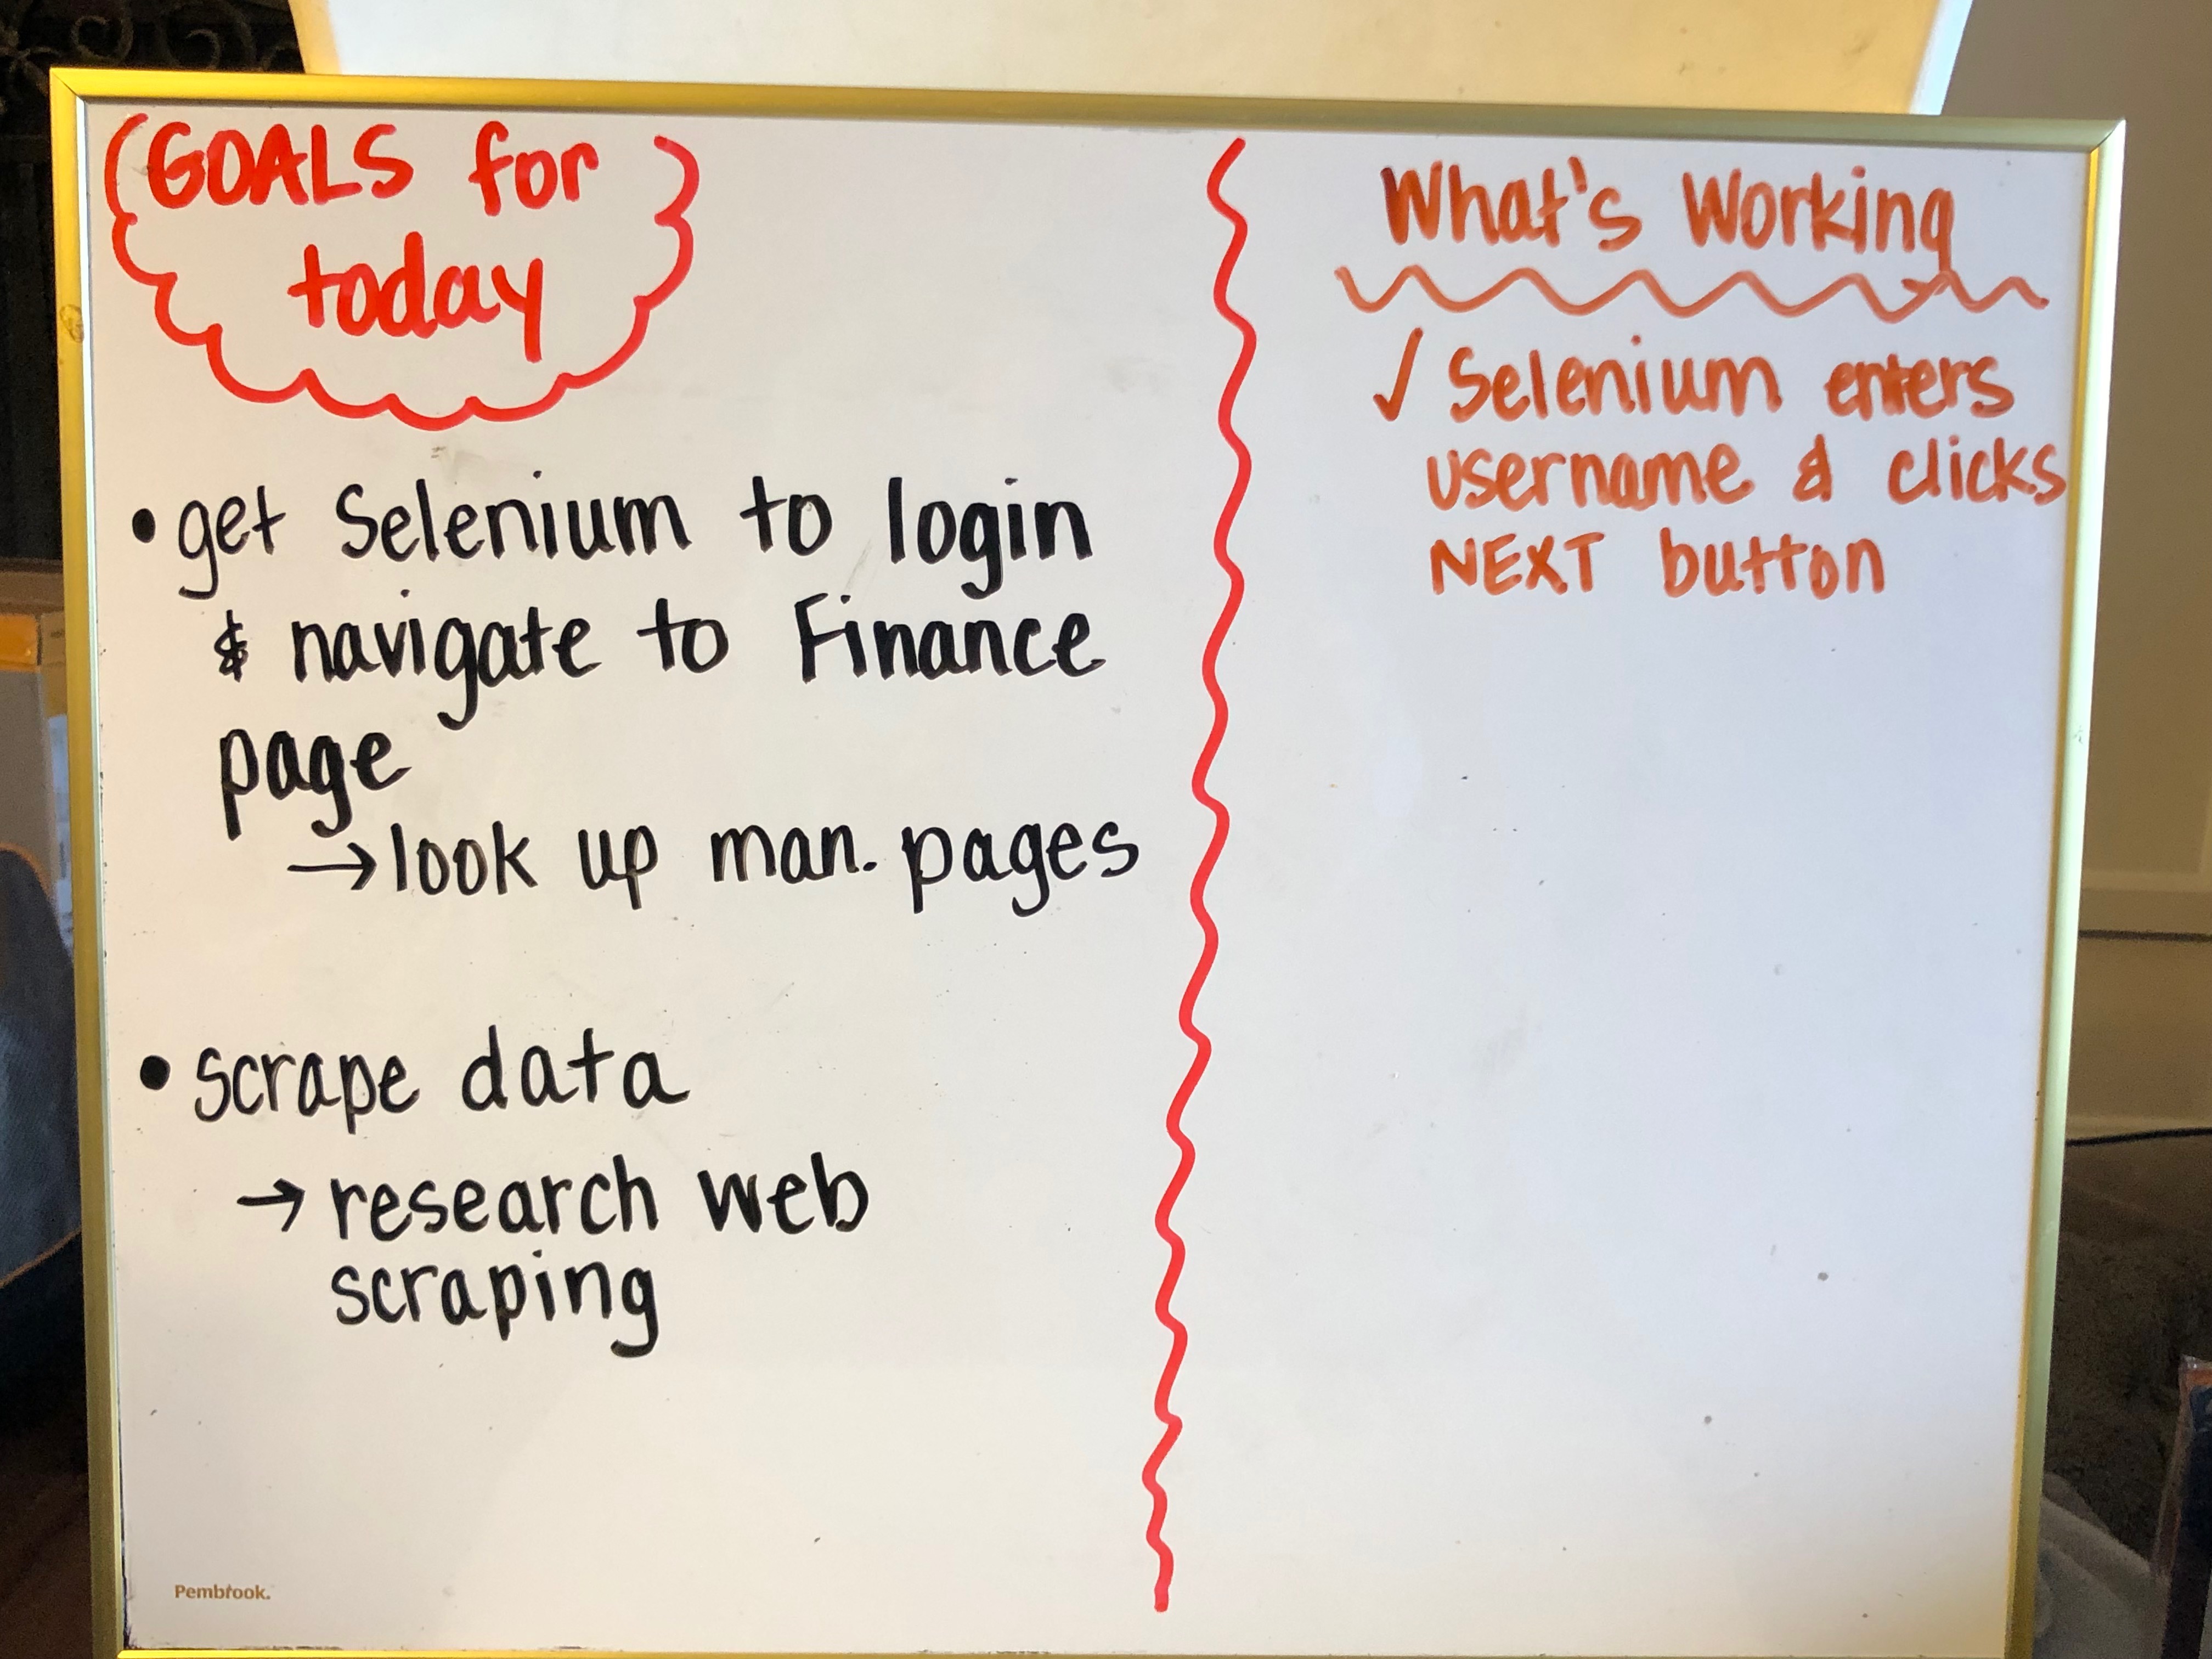 GOALS for
today
• get Selenium to login
& navigate to Finance
page
→ look up man. pages
• scrape data
→ research web
scraping
Pembrook.
What's Working
✓ Selenium enters
username & clicks
NEXT button